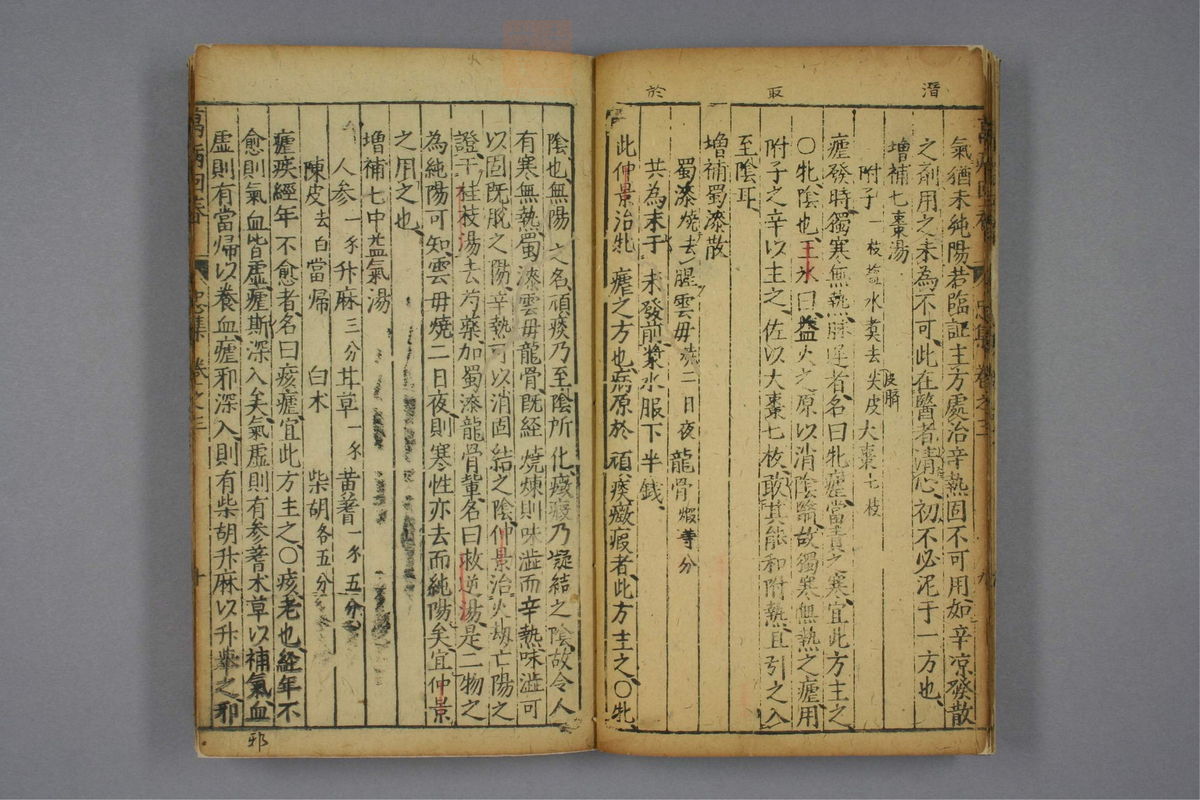 氣猶未純陽若臨証主方處治辛熱固不可用如辛凉發散
之劑用之未為不可此在醫者清心初不必泥于一方也
增補七棗湯
附子一枝塩水煑去尖皮皮臍 大棗七枝
瘧發時獨寒無熱脉遲者名曰牝瘧當責之寒宜此方主之
〇牝陰也王冰曰益火之原以消陰翳故獨寒無熱之瘧用
附子之辛以主之佐以大棗七枚取其能和附熱且引之入
至陰耳
增補蜀漆散
蜀漆燒去腥 雲毋燒二日夜 龍骨煆等分
共為末于未發前漿水服下半錢
此仲景治牝瘧之方也病原於頑痰癥瘕者此方主之〇牝
陰也無陽之名頑痰乃至陰所化癥瘕乃凝結之陰故令人
有寒無熱蜀漆雲毋龍骨既經燒煉則味澁而辛熱味澁可
以固既脫之陽辛熱可以消固結之陰仲景治火劫亡陽之
證干桂枝湯去芍藥加蜀漆龍骨輩名曰救逆湯是二物之
為純陽可知雲毋燒二日夜則寒性亦去而純陽矣宜仲景
之用之也
增補七中益氣湯
人參一錢 升麻三分 甘草一錢 黃蓍一錢五分
陳皮去白 當帰 白术 柴胡各五分
瘧疾經年不愈者名曰痎瘧宜此方主之〇痎老也經年不
愈則氣血皆虛瘧斯深入矣氣虛則有參蓍术草以補氣血
虛則有當帰以養血瘧邪深入則有柴胡升麻以升舉之邪
萬病回春 忠集 卷之三 十
萬病回春 忠集 卷之三 九
潛 取 於
邪